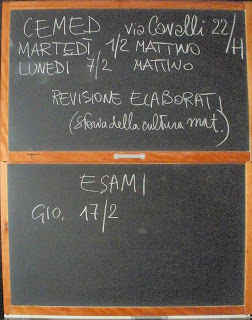 CEMED via Cavalli 22/H
MARTEDÌ, 1/2 MATTINO
LUNEDÌ 7/2 MATTINO
REVISIONE ELABORATI
(storia della cultura mat.)
ESAMI
GIO. 17/2